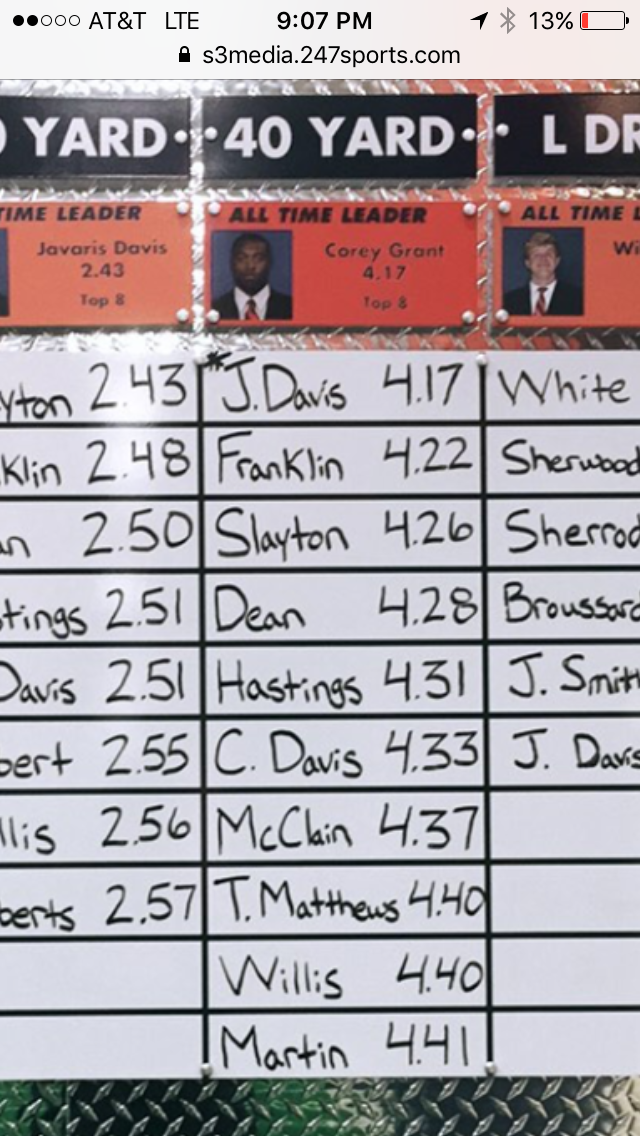 AT&T LTE 9:07 PM 13%
s3media.247sports.com
YARD 40 YARD L DR
TIME LEADER ALL TIME LEADER ALL TIME
Javaris Davis Corey Grant Wi
2.43 4.17
Top 8 Top 8
yton 2.43 *J. Davis 4.17 White
klin 2.48 Franklin 4.22 Sherwood
an 2.50 Slayton 4.26 Sherrod
tings 2.51 Dean 4.28 Broussard
Davis 2.51 Hastings 4.31 J. Smith
bert 2.55 C. Davis 4.33 J. Davis
llis 2.56 McClain 4.37
berts 2.57 T. Matthews 4.40
Willis 4.40
Martin 4.41